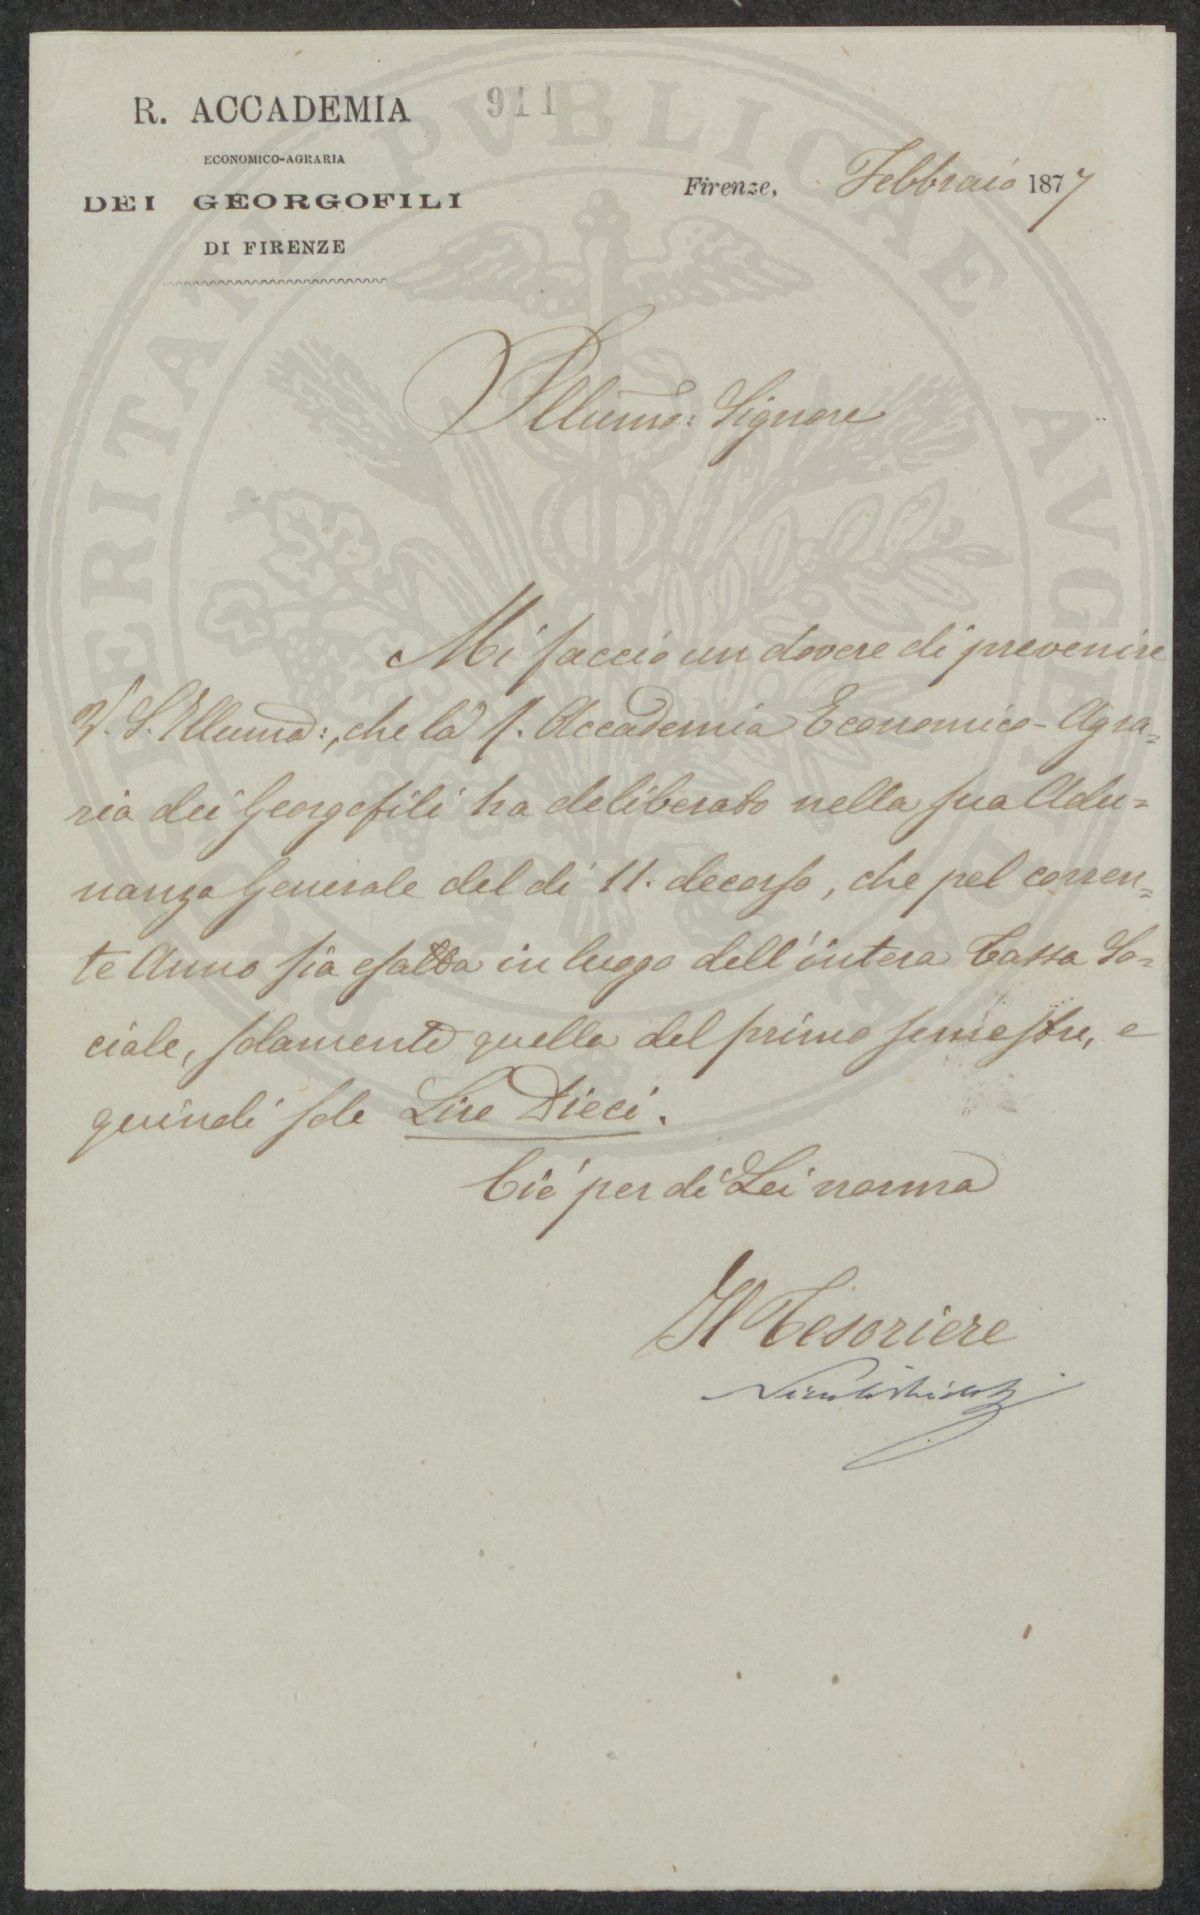 R. ACCADEMIA
ECONOMICO-AGRARIA
DEI GEORGOFILI
DI FIRENZE
911
Firenze, Febbraio 1877
PROSPERITATI PVBLICAE AVGENDAE
Illumo: Signore
Mi faccio un dovere di prevenire
V. S. Illuma:, che la R. Accademia Economico-Agra=
ria dei Georgofili ha deliberato nella sua Adu=
nanza Generale del dì 11. decorso, che pel corren=
te Anno sia esatta in luogo dell'intera Tassa So=
ciale, solamente quella del primo semestre, e
quindi sole Lire Dieci.
Ciò per di Lei norma
Il Tesoriere